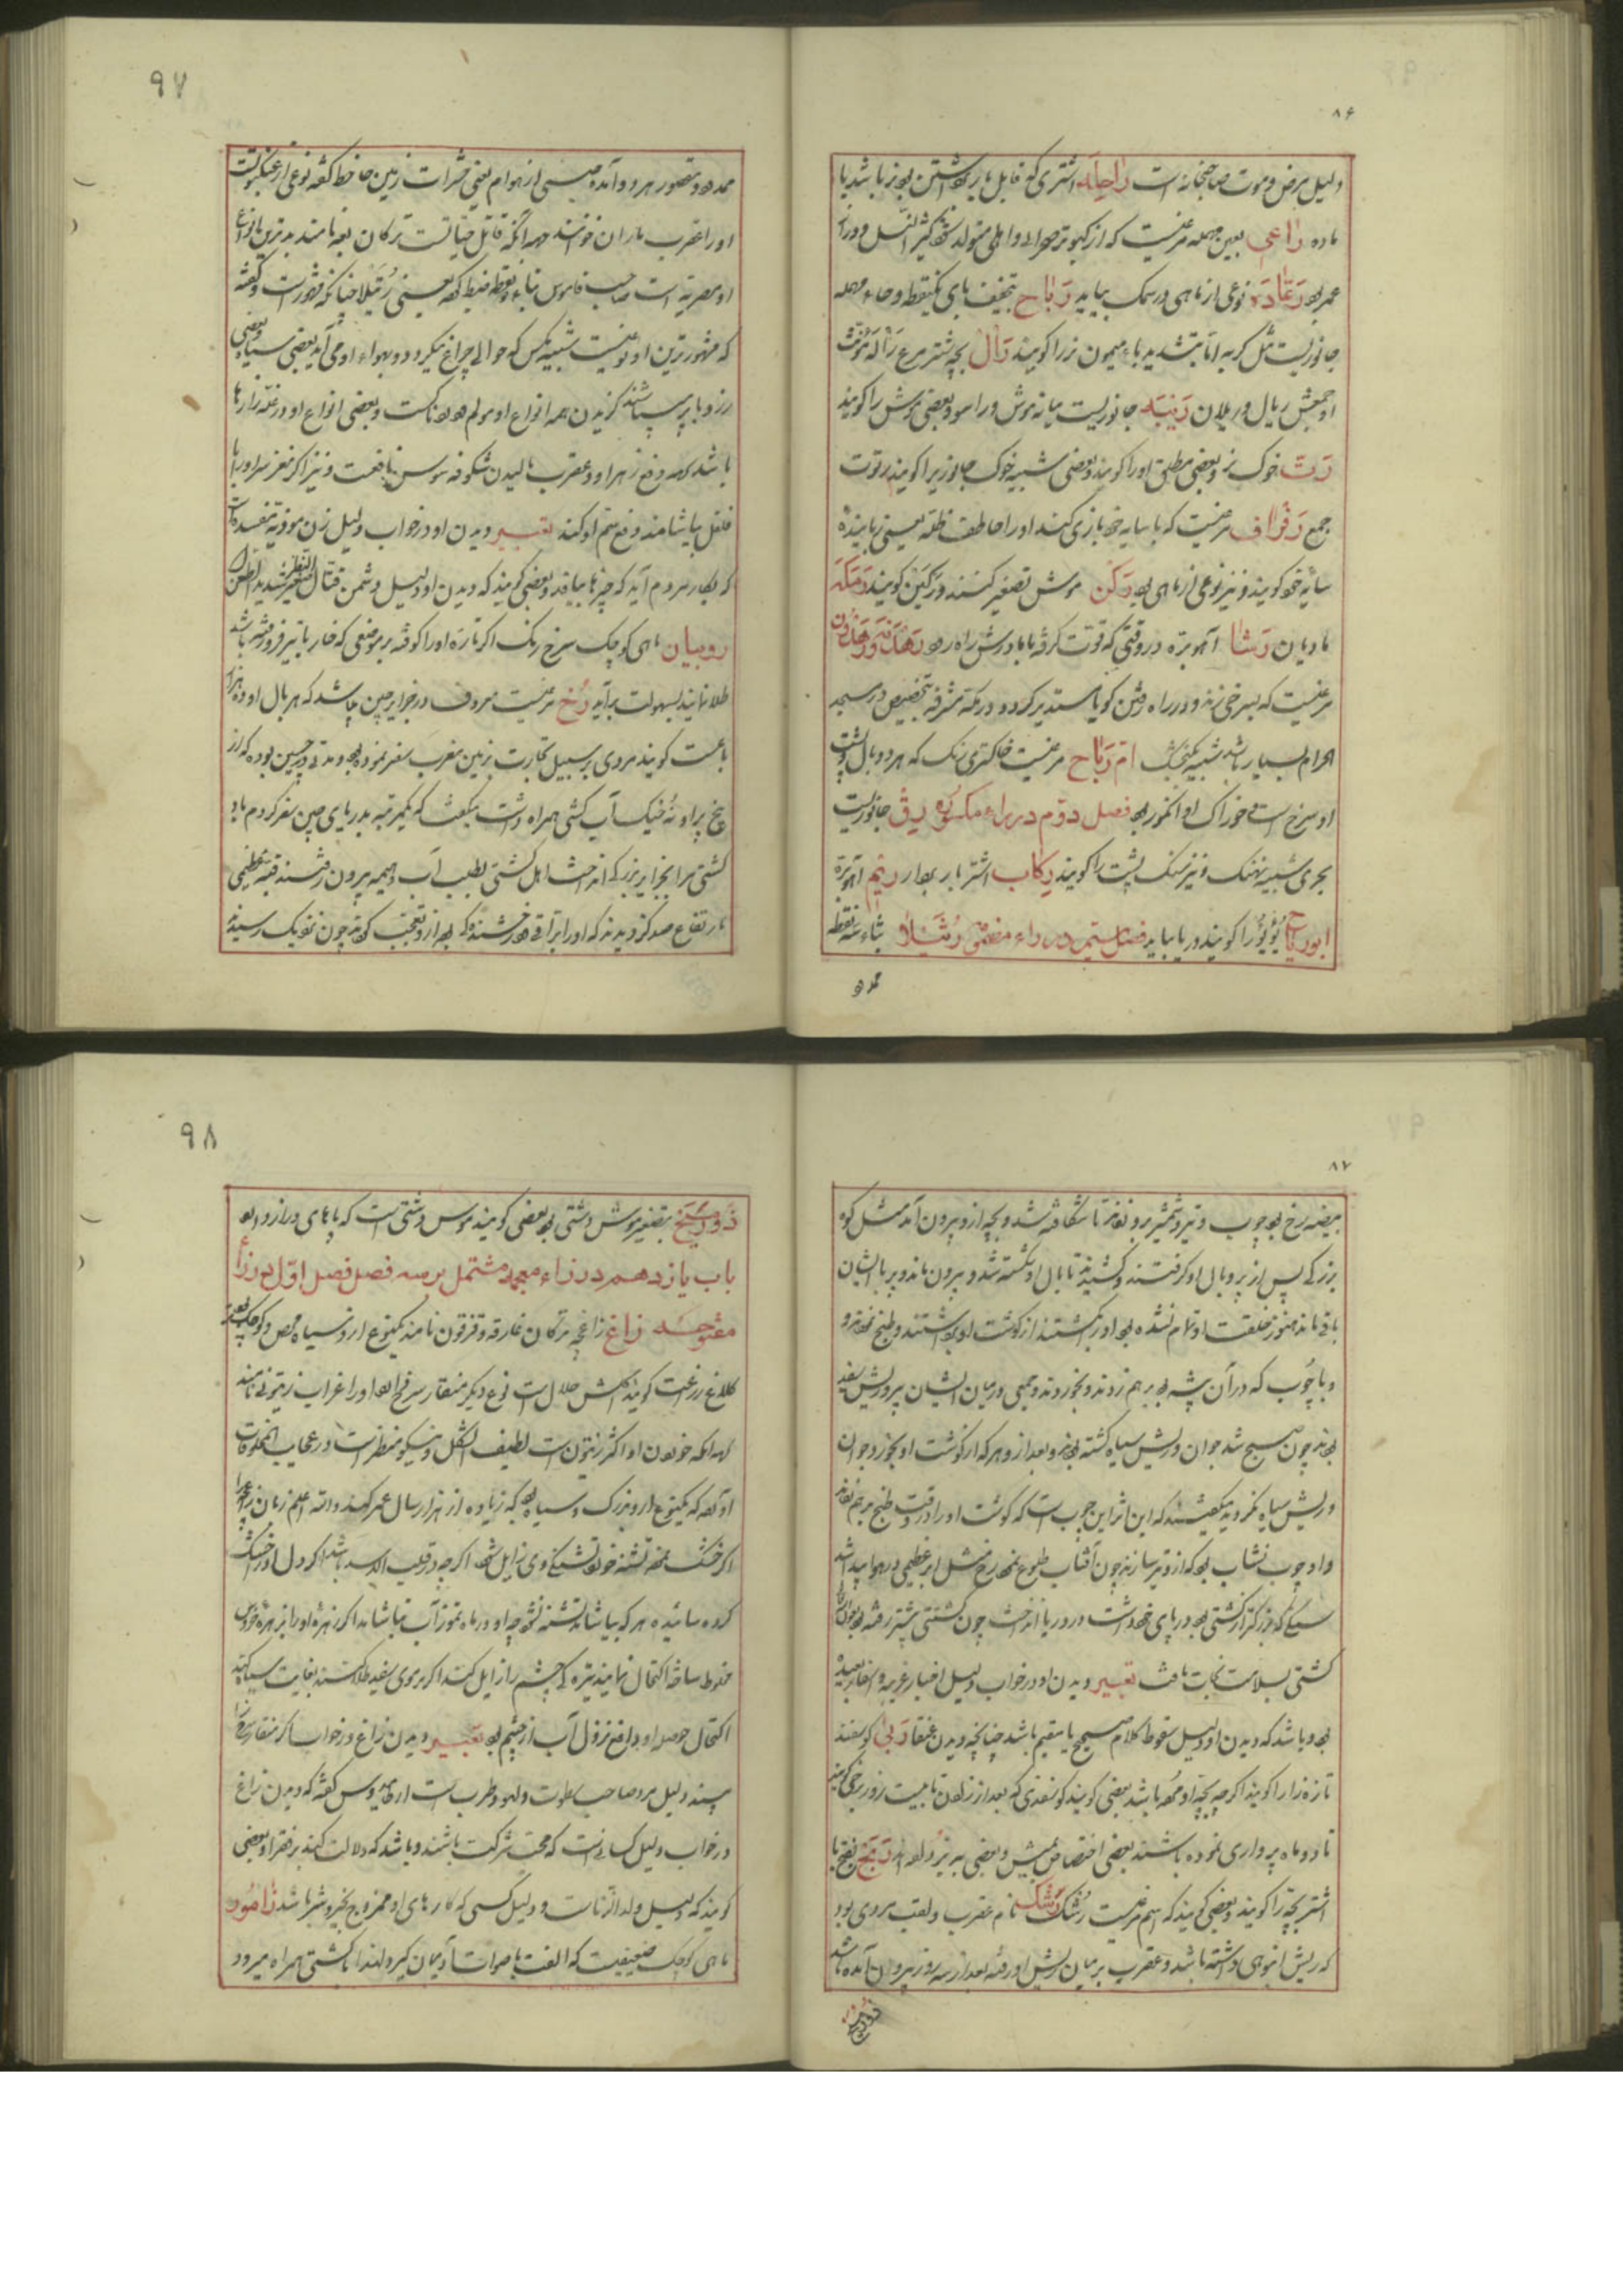 ۸۶
دلیل مرض و موت صاحبخانه است راحله اشتری که قابل بار برداشتن بود نر باشد یا
ماده راعی بعین مهمله مرغیست که از کبوتر صحرائی و اهلی متولد شود کثیر النسل و دراز
عمر بود رعاده نوعی از ماهی در سمک بیاید رباح بتخفیف بای یکنقطه و حاء مهمله
جانوریست مثل گربه اما بتشدید باء میمون نر را گویند رال بچه شتر مرغ رأله مؤنث
او جمعش ریال و ریلان جانوریست میانه موش و راسو و بعضی موش را گویند
رت خوک نر و بعضی مطلق او را گویند و بعضی شبیه خوک جانوریرا گویند رتوت
جمع رفراف مرغیست که با سایه خود بازی کند او را خاطف ظله یعنی رباینده
سایه خود گویند و نیز نوعی از ماهی بود رکن موش تصغیر کنند و رکین گویند رمکه
مادیان رشا آهو بره در وقتی که قوت گرفته با مادرش راه رود
مرغیست که بسرخی زند و در راه رفتن گویا مستدیر گردد و در مکه مشرفه بتخصیص در مسجد
الحرام بسیار باشد شبیه بگنجشک ام رباح مرغیست خاکستری رنگ که هر دو بال و پشت
او سرخ است خوراک او انگور بود فصل دوم در راء مکسوره رق جانوریست
بحری شبیه نهنگ و نیز سنگ پشت را گویند رکاب اشتر باربردار ریم آهو بره
ابو ریاح یؤیؤ را گویند در یا بیاید فصل سیم در راء مضمومه رتیلا بثاء سه نقطه
ممدود
۹۷
ممدود و مقصور هر دو آمده جنسی از هوام یعنی حشرات زمین جاحظ گفته نوعی از عنکبوتست
او را عقرب ماران خوانند جهة آنکه قاتل حیاتست ترکان بوه نامند بدترین انواع
او مصریه است صاحب قاموس بتاء دو نقطه ضبط کرده یعنی رتیلا چنانکه مشهور است و گفته
که مشهورترین او نوعیست شبیه بمگس که حوالی چراغ میگردد و بهواء او می آید بعضی سیاه و بعضی
زرد پا پر سیاه باشند گزیدن همه انواع او مولم و دردناکست و بعضی انواع او در غله زارها
باشد جهة دفع زهر او و عقرب مالیدن شکوفه سوسن نافعست و نیز اگر مغز سر او را با
فلفل بیاشامند دفع سم او کند تعبیر دیدن او در خواب دلیل زن موذیه مفسده است
که بکار مردم آید که چیزها ببافد و بعضی گویند که دیدن او دلیل دشمن قتال حقیر النظر شدید الطعن
روبیان ماهی کوچک سرخ رنگ اگر تازه او را کوفته بر موضعی که خار یا تیر فرو رفته باشد
طلا نمایند بسهولت برآید رخ مرغیست معروف در جزایر چین باشد که هر بال او ده هزار
باعست گویند مردی بر سبیل تجارت بزمین مغرب سفر نموده بود و مدتی در چین بوده که از
بیخ پر او نه خیک آب کشی همراه داشت میگفت که یکمرتبه بدریای چین سفر کردم باد
کشتی مرا بجزایر بزرگی انداخت اهل کشتی بطلب آب و هیمه بیرون رفتند قبه عظیمی
بارتفاع صد گز دیدند که او را براقی و درخشندگی بود از و تعجب کردند چون نزدیک رسیدند
۸۷
بیضه رخ بود چوب و تیر و تیشه برو زدند تا شکافته شد و بچه از و بیرون آمد مثل کوه
بزرگی پس از پر و بال او گرفتند و کشیدند تا بال او شکسته شد و بیرون ماند و پر با ایشان
باقی ماند هنوز خلقت او تمام نشده بود او را کشتند از گوشت او برداشتند و طبخ نمودند
و با چوب که در آن بیشه بود بر هم زدند و بخوردند و جمعی در میان ایشان پیر و ریش سفید
بودند چون صبح شد جوان و ریش سیاه گشته بودند و بعد از و هر که از گوشت او بخورد جوان
و ریش سیاه گردید میگفتند که این اثر این چوب است که گوشت او را در وقت طبخ بر هم زدند
و او چوب نشاب بود که از و تیر سازند چون آفتاب طلوع نمود رخ مثل ابر عظیمی در هوا پیدا شد
سنگی که بزرگتر از کشتی بود در پای خود داشت در دریا انداخت چون کشتی پیشتر رفته بود
کشتی بسلامت نجات یافت تعبیر دیدن او در خواب دلیل اخبار غریبه و اسفار بعیده
بود و باشد که دیدن او دلیل سقوط کلام صحیح یا سقیم باشد چنانچه دیدن عنقا ربی گوسفند
تازه زا را گویند اگر چه بچه او مرده باشد بعضی گویند گوسفندی که بعد از زادن تا بیست روز ربی گویند
تا دو ماه پرواری نموده باشند بعضی اختصاص بمیش و بعضی به بز داده اند ربح بفتح با
اشتر بچه را گویند و بعضی گویند که اسم مرغیست رشک رشک نام عقرب و لقب مردی بود
که ریش انبوهی داشته باشد و عقرب بر میان ریش او رفته بعد از سه روز بیرون آمده باشد
۹۸
بتصغیر موش دشتی بود بعضی گویند موس دشتی است که پاهای دراز دارد
باب یازدهم در زاء معجمه مشتمل بر سه فصل فصل اول در زاء
مفتوحه زاغ زاغچه ترکان غارقه و قزقون نامند یکنوع از و سیاه محض و کوچک بود
کلاغ زرعت گویند گوشتش حلال است نوع دیگر منقار سرخ دارد او را غراب زیتونی نامند
جهة آنکه خوردن او اکثر زیتون است لطیف الشکل و نیکو منظر است در عجایب المخلوقات
آورده که یکنوع از و بزرگ و سیاه بود که زیاده از هزار سال عمر کند والله اعلم زبان زاغ را
اگر خشک نموده تشنه خورد تشنگی وی زایل شود اگر چه در قلب الاسد باشد اگر دل او خشک
کرده سائیده هر که بیاشامد تشنه نشود چه او در ماه تموز آب نیاشامد اگر زهره او را بزهره خروس
مخلوط ساخته اکتحال نمایند تیره گی چشم را زایل کند اگر بر موی سفید طلا کنند بغایت سیاه کند
اکتحال حوصله او مانع نزول آب از چشم بود تعبیر دیدن زاغ در خواب اگر منقار سرخ
بیند دلیل مرد صاحب سطوت و لهو و طرب است ارطامیدوس گفته که دیدن زاغ
در خواب دلیل کسانیست که محبت شرکت باشند و باشد که دلالت کند بر فقرا و بعضی
گویند که دلیل ولد الزنا است و دلیل کسی که کارهای او ممزوج بخیر و شر باشد زامور
ماهی کوچک ضعیفیست که الفت باصوات آدمیان گیرد لهذا با کشتی همراه میرود